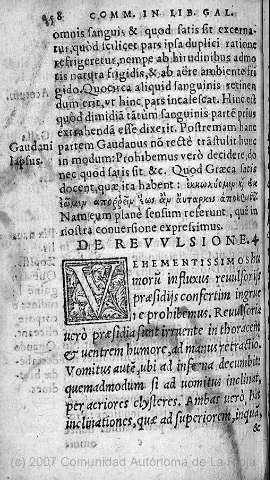 958 COMM. IN LIB. GAL.
omnis sanguis & quòd satis sit excerna-
tur, quòd scilicet pars ipsa duplici ratione
refrigeretur, nempe ab hirudinibus admo
tis natura frigidis, & ab aëre ambiente fri
gido. Quocirca aliquid sanguinis retinen
dum erit, vt hinc pars incalescat. Hinc est
quòd dimidiã tãtùm sanguinis partẽ priùs
extrahendã esse dixerit. Postremam hanc
Gaudani partem Gaudanus nõ rectè trãstulit hunc
lapsus. in modum: Prohibemus verò decidere, do
nec quod satis sit. &c. Quod Græca satis
docent, quæ ita habent:
Nam eum planè sensum referunt, quẽ in
nostra conuersione expressimus.
DE REVVLSIONE. 4
VEHEMENTISSIMOS hu
morũ influxus reuulsorijs
præsidijs confertim ingrue
re prohibemus. Reuulsoria
verò præsidia sunt irruente in thoracem
& uentrem humore, ad manus retractio.
Vomitus autẽ, ubi ad inferna decumbit:
quemadmodum si ad uomitus inclinat,
per acriores clysteres. Ambas verò has
inclinationes, quæ ad superiorem, inquã,
&
(c) 2007 Comunidad Autónoma de La Rioja